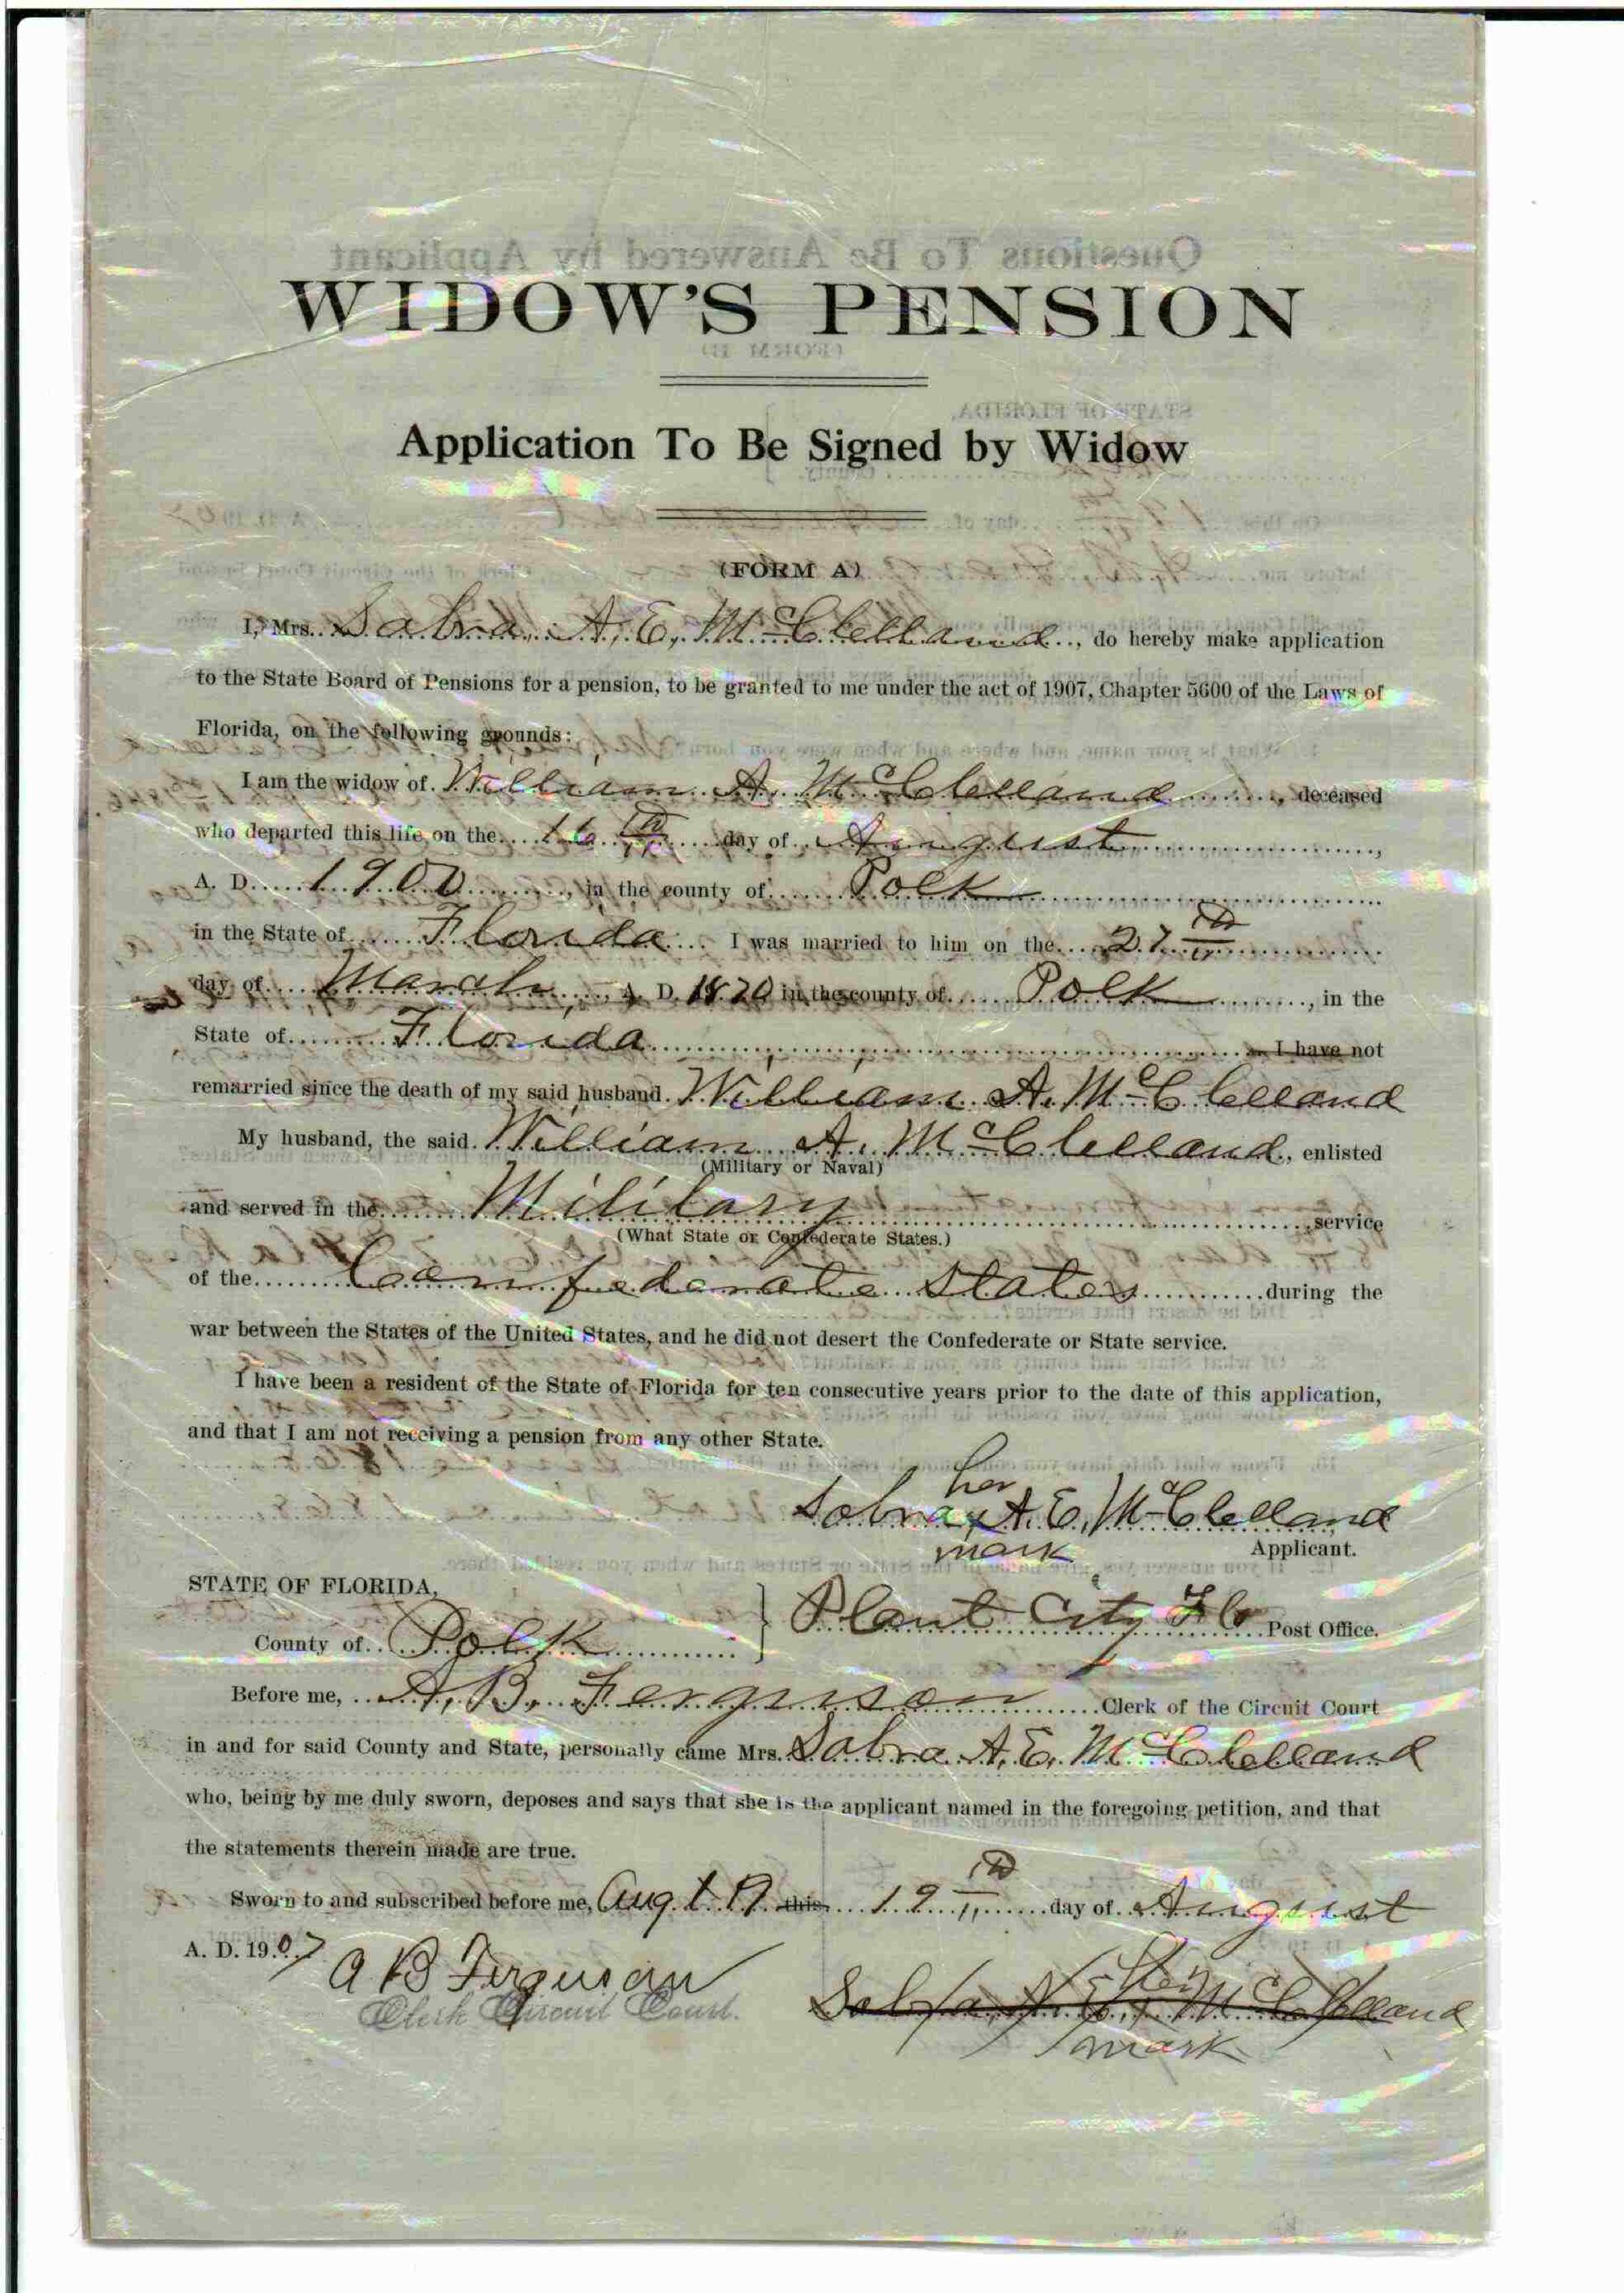 WIDOW'S PENSION
Application To Be Signed by Widow
(FORM A)
I, Mrs. Sabra, A, E, McClelland, do hereby make application
to the State Board of Pensions for a pension, to be granted to me under the act of 1907, Chapter 5600 of the Laws of
Florida, on the following grounds:
I am the widow of William A. McClelland, deceased
who departed this life on the 16th day of August,
A. D. 1900, in the county of Polk
in the State of Florida. I was married to him on the 27th
day of March, A. D. 1870 in the county of Polk, in the
State of Florida I have not
remarried since the death of my said husband. William A. McClelland
My husband, the said William A. McClelland, enlisted
(Military or Naval)
and served in the Military service
(What State or Confederate States.)
of the Confederate States during the
war between the States of the United States, and he did not desert the Confederate or State service.
I have been a resident of the State of Florida for ten consecutive years prior to the date of this application,
and that I am not receiving a pension from any other State.
her
Sabra x A. E. McClelland
mark
Applicant.
STATE OF FLORIDA,
County of Polk
Plant City Fla Post Office.
Before me, A, B, Ferguson Clerk of the Circuit Court
in and for said County and State, personally came Mrs. Sabra A. E. McClelland
who, being by me duly sworn, deposes and says that she is the applicant named in the foregoing petition, and that
the statements therein made are true.
Sworn to and subscribed before me, Aug 19 this 19th day of August
A. D. 1907
A B Ferguson
Clerk Circuit Court.
her
Sabra A. E. x McClelland
mark